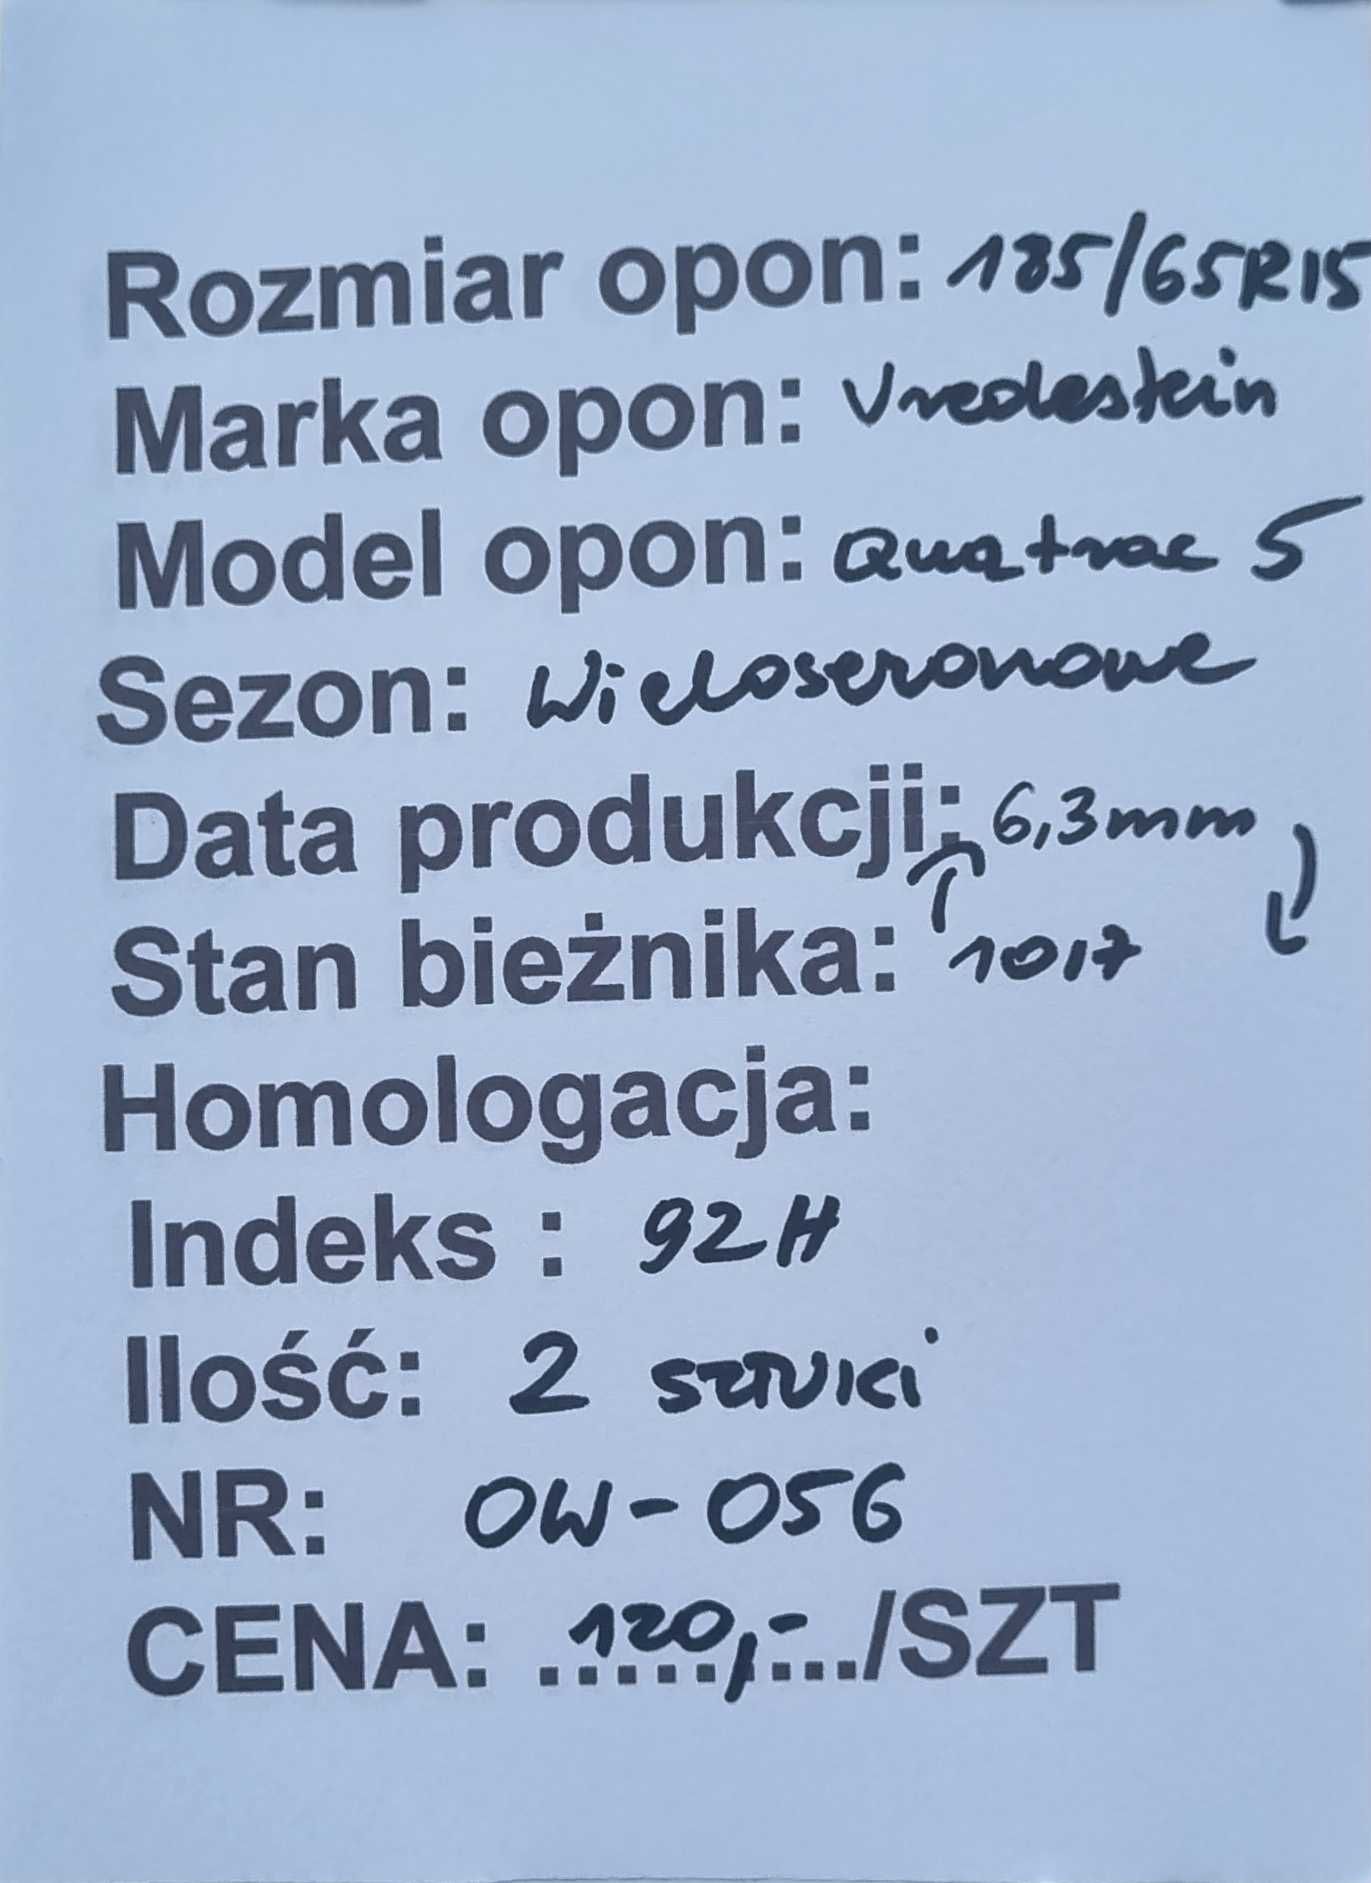 Rozmiar opon: 185/65R15
Marka opon: Vredestein
Model opon: Quatrac 5
Sezon: Wielosezonowe
Data produkcji: 6,3mm
Stan bieżnika: 1017
Homologacja:
Indeks : 92H
Ilość: 2 sztuki
NR: OW-056
CENA: 120,-/SZT